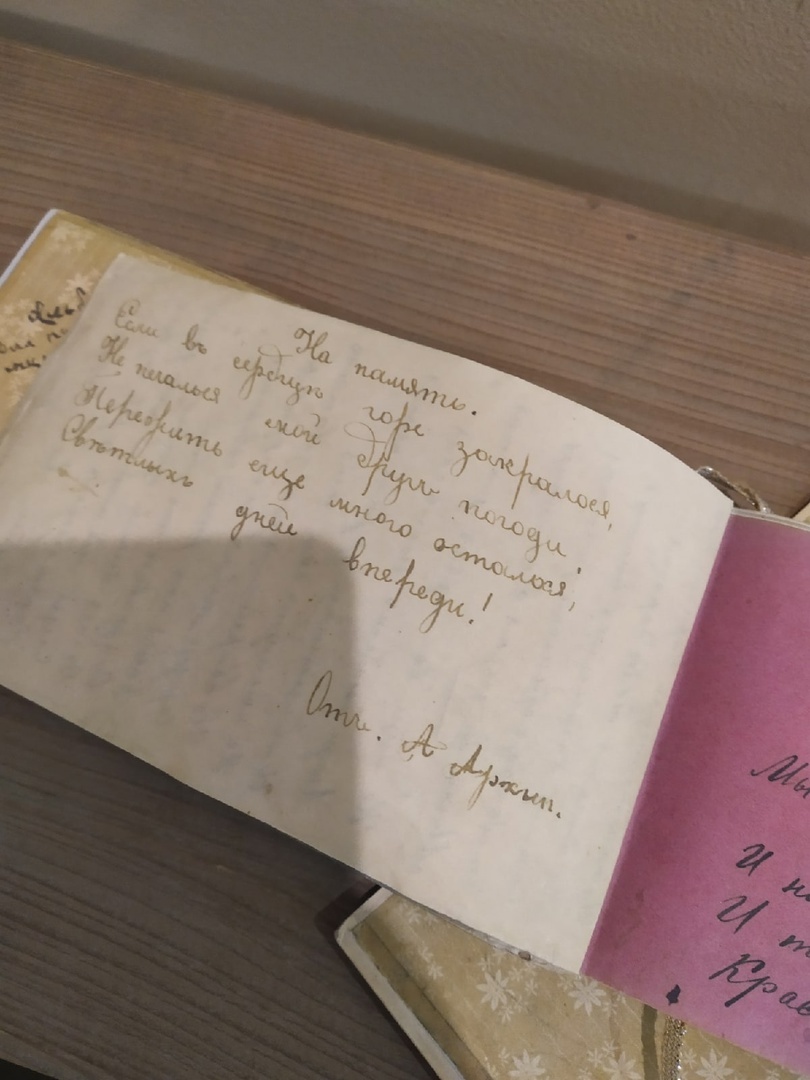 На память.
Если въ сердцѣ горе закралося,
Не печалься мой другъ погоди.
Пережить еще много осталося,
Свѣтлыхъ дней впереди!
Отъ. А Архип.
Мы
И
И